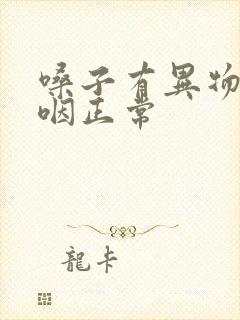 嗓子有異物
咽正常
龍卡